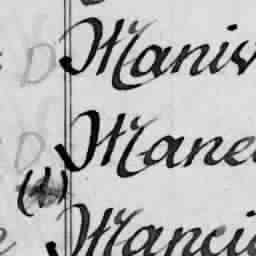 D Maniv
D Mane
(1)
Mancia